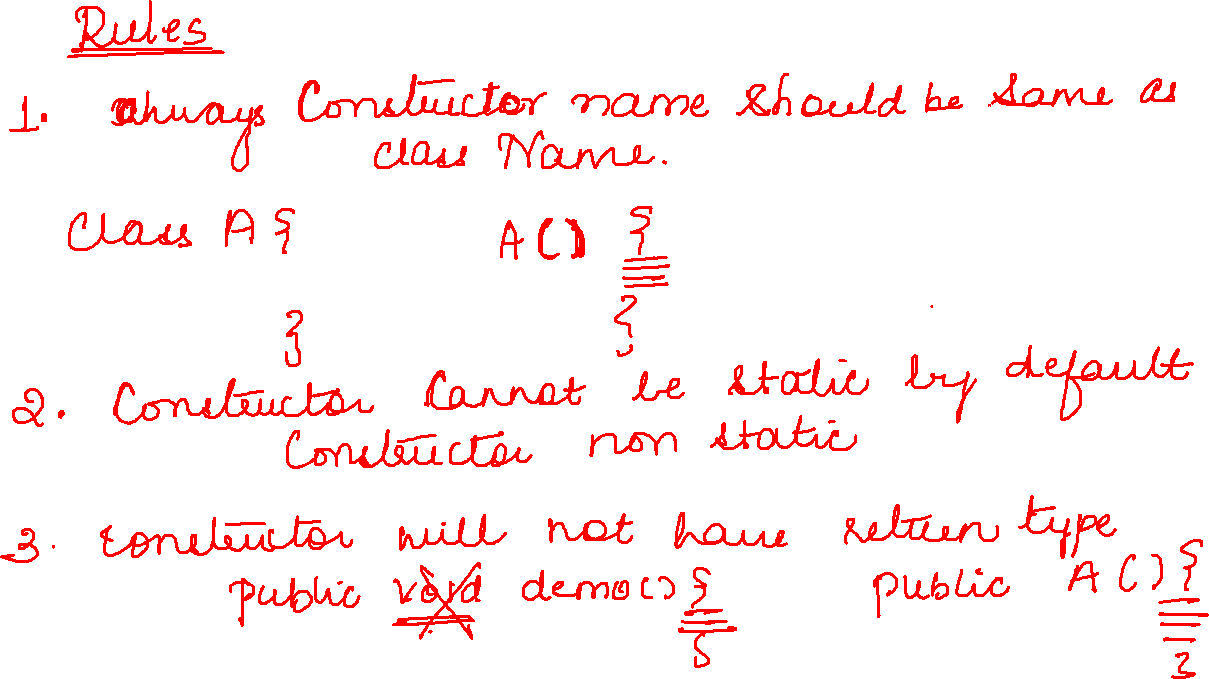 Rules
1. always Constructor name should be same as
class Name.
Class A { A() {
} }
2. Constructor Cannot be static by default
Constructor non static
3. constructor will not have return type
public void demo() { public A() {
} }